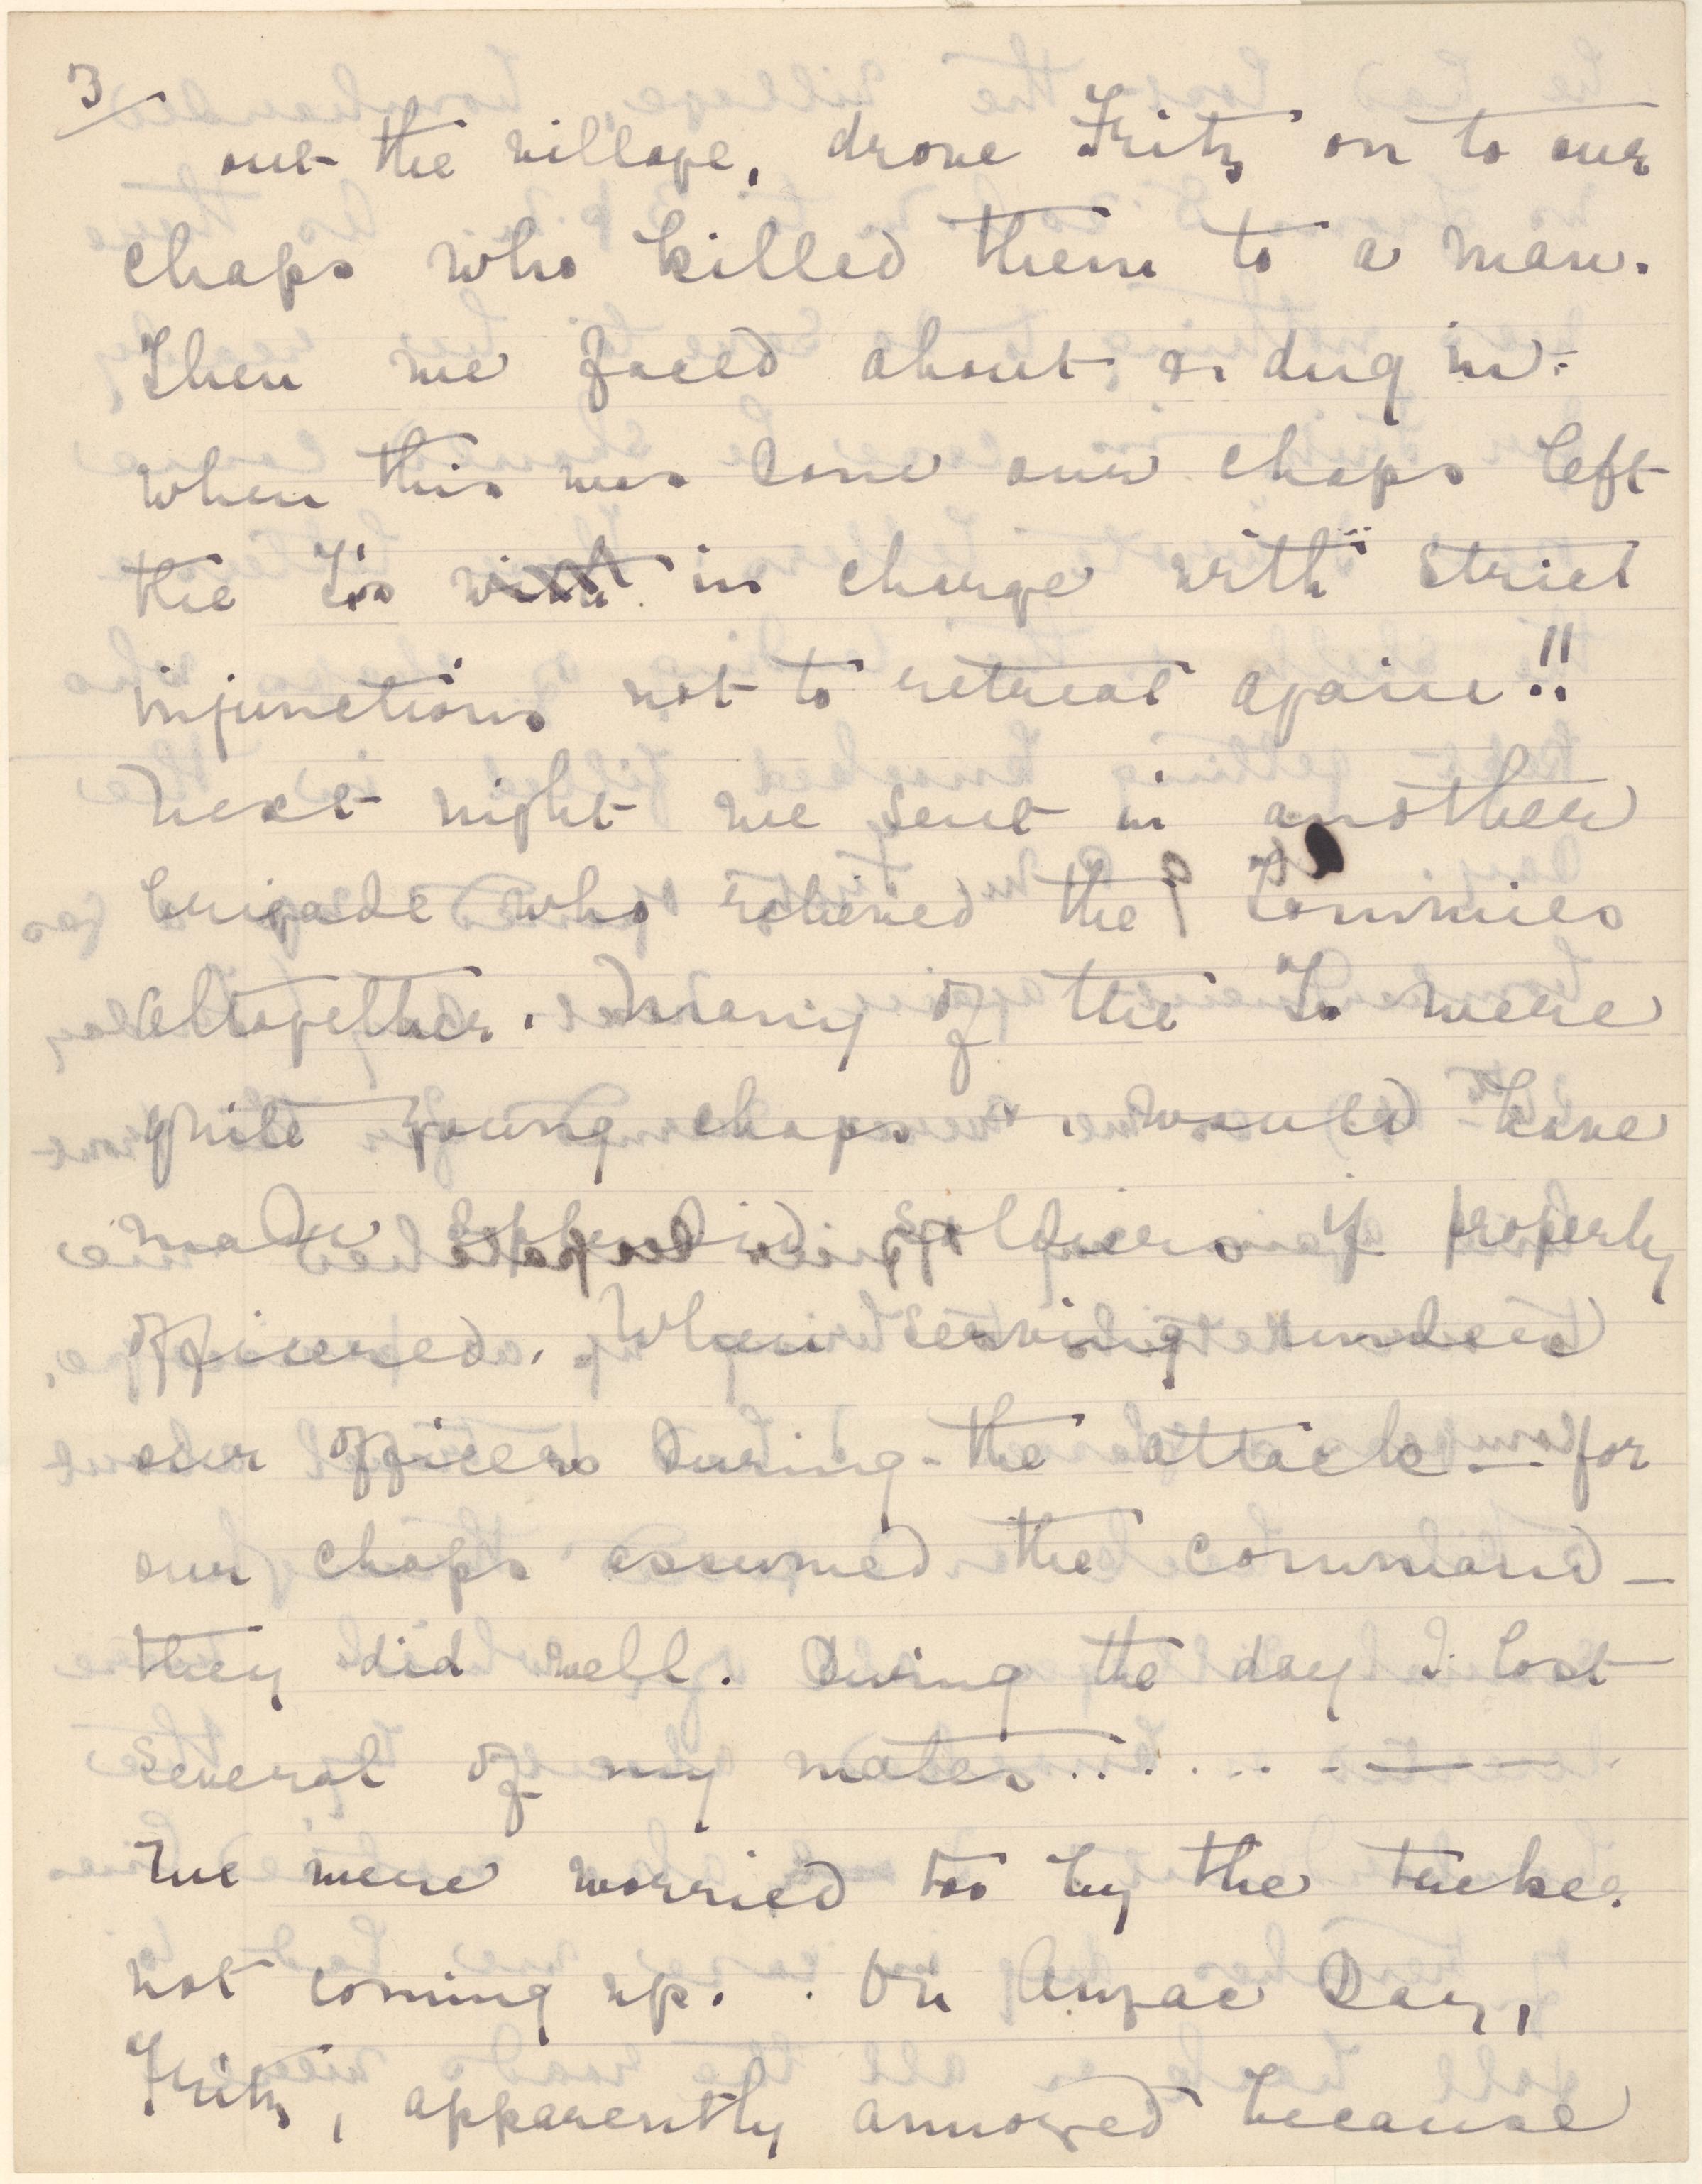 3/
out the village, drove Fritz on to our
chaps who killed them to a man.
Then we faced about, & dug in.
when this was done our chaps left
the T's in charge with strict
injunctions not to retreat again!!
Next night we sent in another
brigade who relieved the Tommies
altogether. Many of the Ts. were
quite young chaps & would have
made splendid soldiers if properly
officered. When serving under
our officers during the attack — for
our chaps assumed the command —
they did well. During the day I lost
several of my mates........ — —
We were worried too by the tucker
not coming up. On Anzac Day,
Fritz, apparently annoyed because